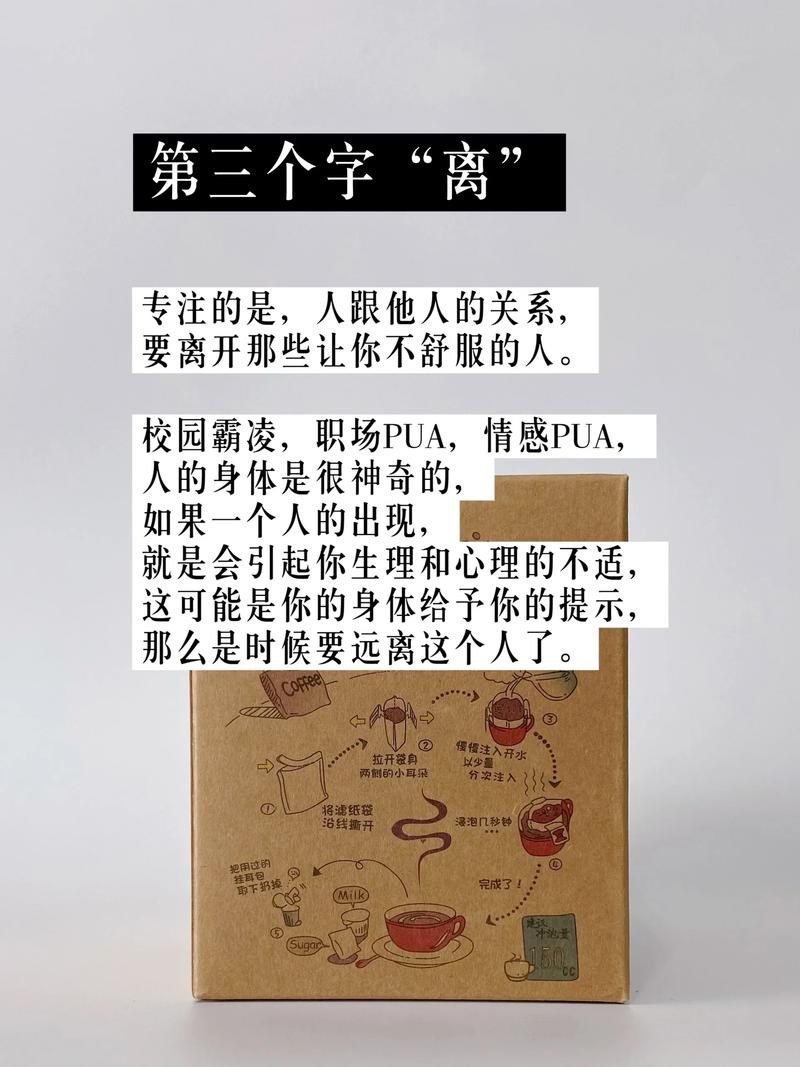 第三个字“离”
专注的是，人跟他人的关系，
要离开那些让你不舒服的人。
校园霸凌，职场PUA，情感PUA，
人的身体是很神奇的，
如果一个人的出现，
就是会引起你生理和心理的不适，
这可能是你的身体给予你的提示，
那么是时候要远离这个人了。
Coffee
①
将滤纸袋
沿线撕开
拉开袋身
②
两侧的小耳朵
③
慢慢注入开水
以少量
分次注入
浸泡几秒钟
④
完成了！
把用过的
挂耳包
取下扔掉
⑤
Milk
Sugar
建议
冲泡量
150
CC